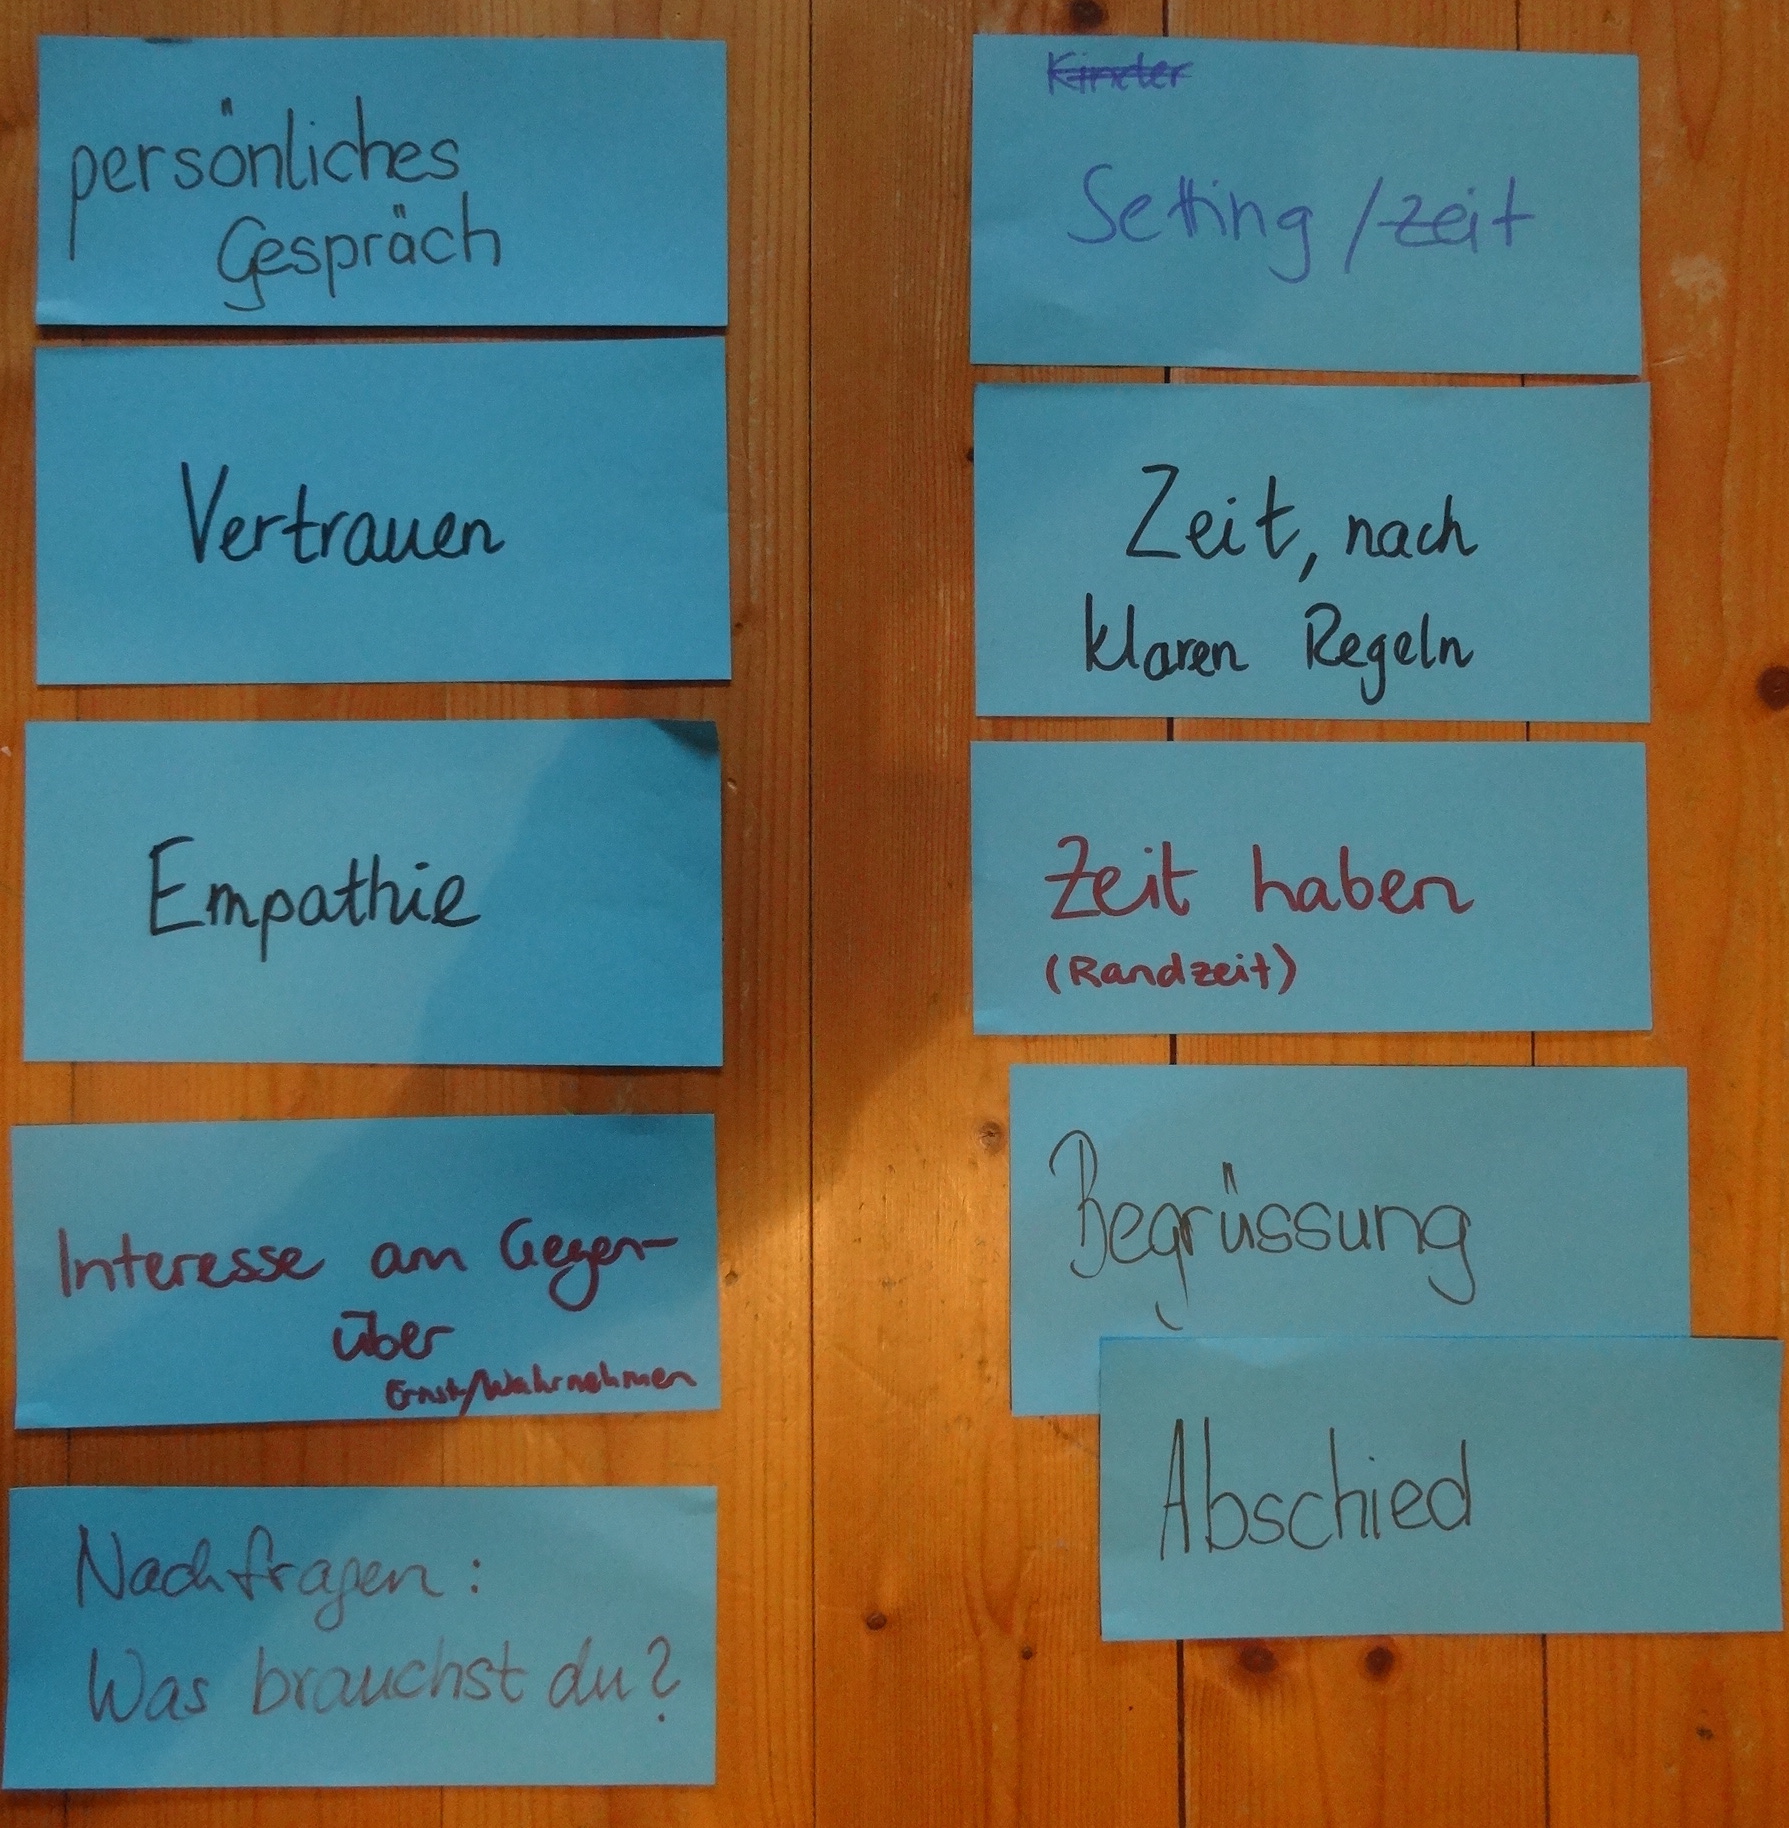 persönliches
Gespräch
Vertrauen
Empathie
Interesse am Gegen-
über
Ernst/Wahrnehmen
Nachfragen:
Was brauchst du?
Kinder
Setting / Zeit
Zeit, nach
klaren Regeln
Zeit haben
(Randzeit)
Begrüssung
Abschied